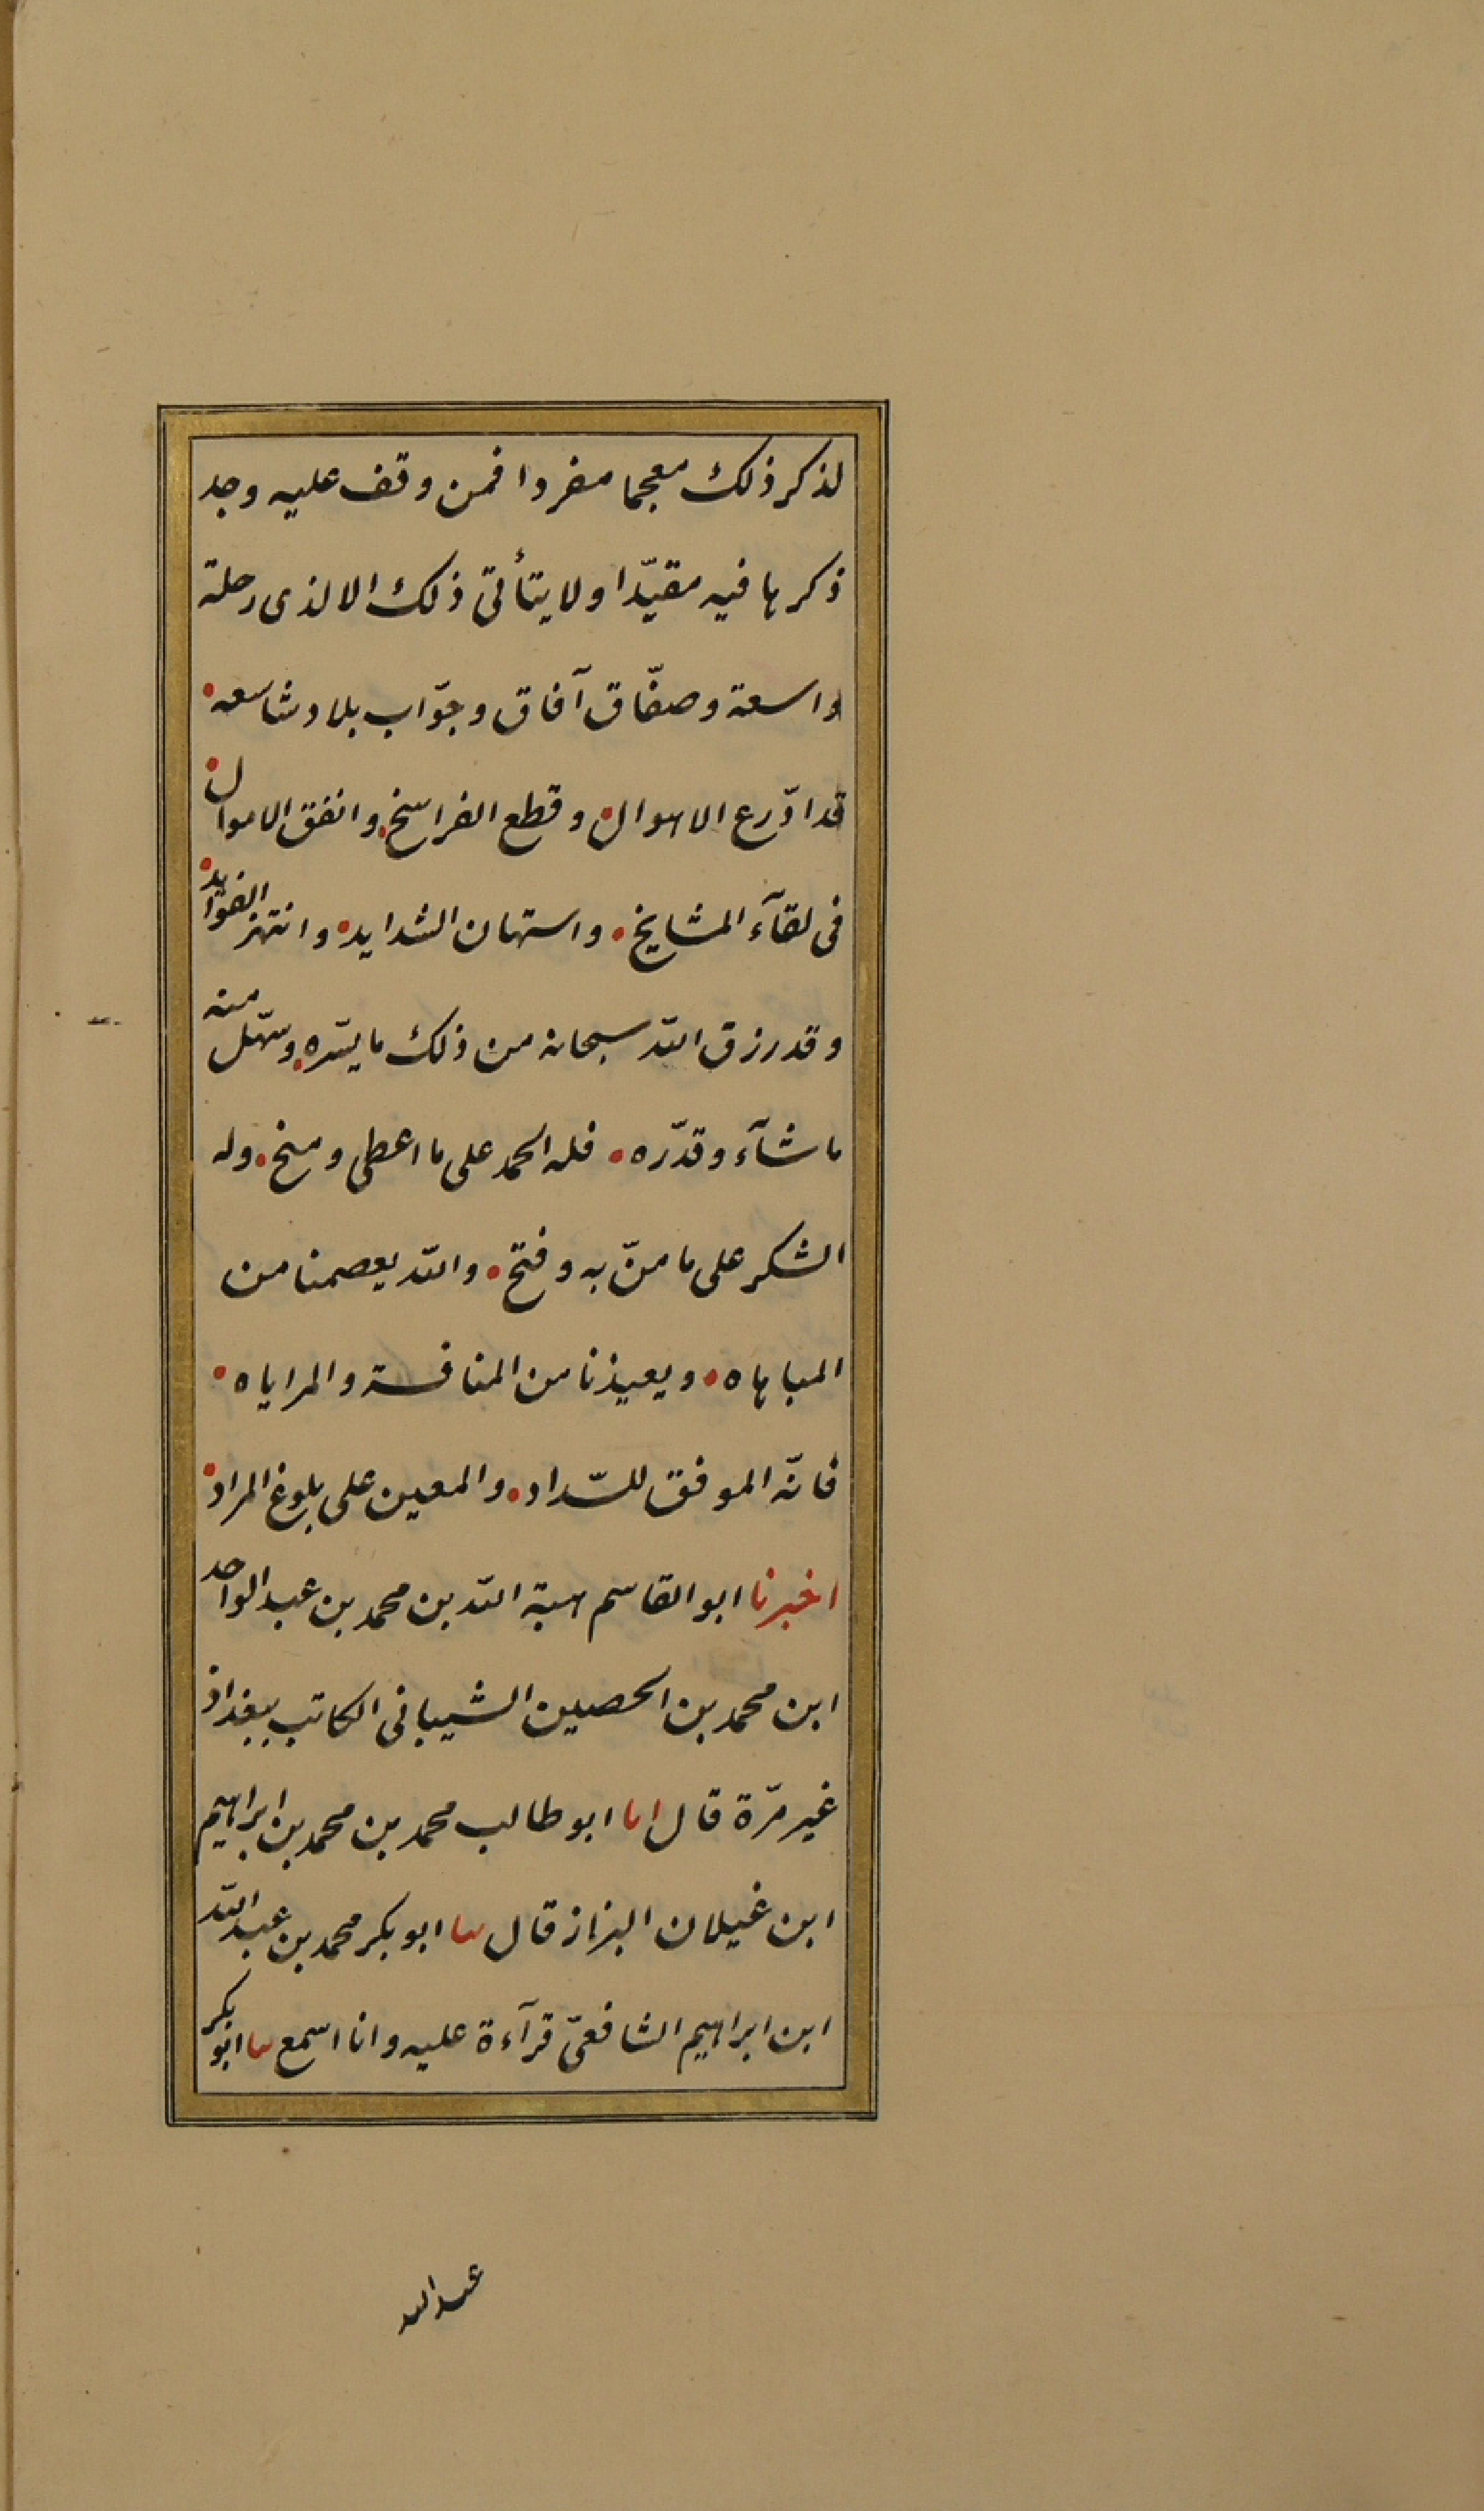 لذكر ذلك معجما مفردا فمن وقف عليه وجد
ذكرها فيه مقيّدا ولا يتأتى ذلك الا لذى رحلة
واسعة وصفّاق آفاق وجوّاب بلاد شاسعه
قد ادّرع الاهوال وقطع الفراسخ وانفق الاموال
فى لقآء المشايخ واستهان الشدايد وانتهز الفوايد
وقد رزق الله سبحانه من ذلك ما يسّره وسهّل منه
ما شآء وقدّره فله الحمد على ما اعطى ومنح وله
الشكر على ما منّ به وفتح والله يعصمنا من
المباهاه ويعيذنا من المنافسة والمراياه
فانّه الموفق للسّداد والمعين على بلوغ المراد
اخبرنا ابو القاسم هبة الله بن محمد بن عبد الواحد
ابن محمد بن الحصين الشيبانى الكاتب ببغداذ
غير مرّة قال انا ابو طالب محمد بن محمد بن ابراهيم
ابن غيلان البزاز قال ثنا ابو بكر محمد بن عبد الله
ابن ابراهيم الشافعىّ قرآءة عليه وانا اسمع ثنا ابو بكر
عبد الله